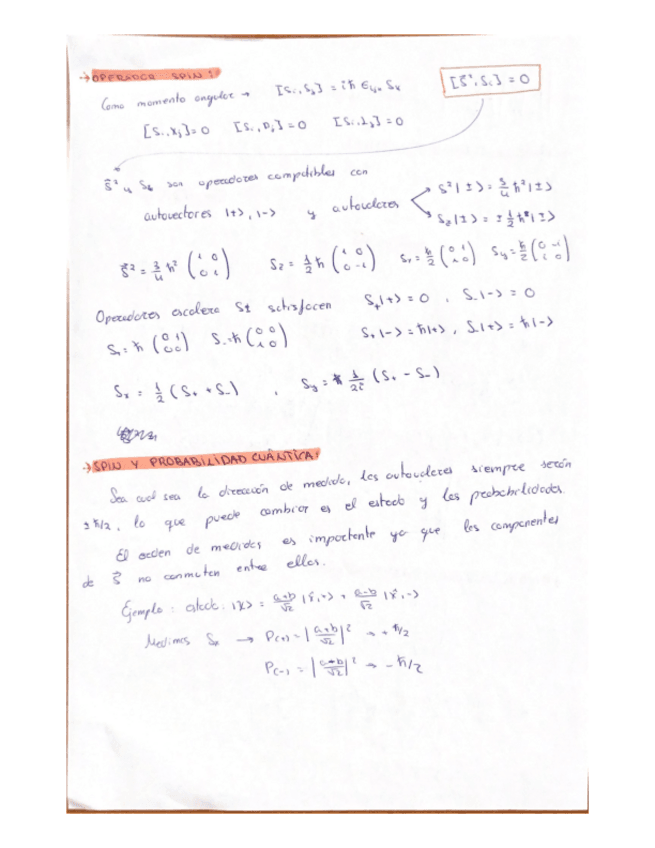 → OPERADOR SPIN:
Como momento angular → [Si, Sj] = iħ Eijk Sk   [S⃗², Si] = 0
[Si, Xj] = 0   [Si, Pj] = 0   [Si, Lj] = 0
S⃗² y Sz son operadores compatibles con   S²|±⟩ = 3/4 ħ²|±⟩
autovectores |+⟩, |-⟩ y autovalores   Sz|±⟩ = ±1/2 ħ|±⟩
S⃗² = 3/4 ħ² (1 0 / 0 1)   Sz = 1/2 ħ (1 0 / 0 -1)   Sx = ħ/2 (0 1 / 1 0)   Sy = ħ/2 (0 -i / i 0)
Operadores escalera S± satisfacen   S+|+⟩ = 0 , S-|-⟩ = 0
S+ = ħ (0 1 / 0 0)   S- = ħ (0 0 / 1 0)   S+|-⟩ = ħ|+⟩ , S-|+⟩ = ħ|-⟩
Sx = 1/2 (S+ + S-) , Sy = 1/2i (S+ - S-)
→ SPIN Y PROBABILIDAD CUÁNTICA:
Sea cual sea la dirección de medida, los autovalores siempre serán
±ħ/2, lo que puede cambiar es el estado y las probabilidades.
El orden de medidas es importante ya que las componentes
de S⃗ no conmutan entre ellas.
Ejemplo: |X⟩ = a+b/√2 |x⃗,+⟩ + a-b/√2 |x⃗,-⟩
Medimos Sx → P(+) = |a+b/√2|² → +ħ/2
P(-) = |a-b/√2|² → -ħ/2